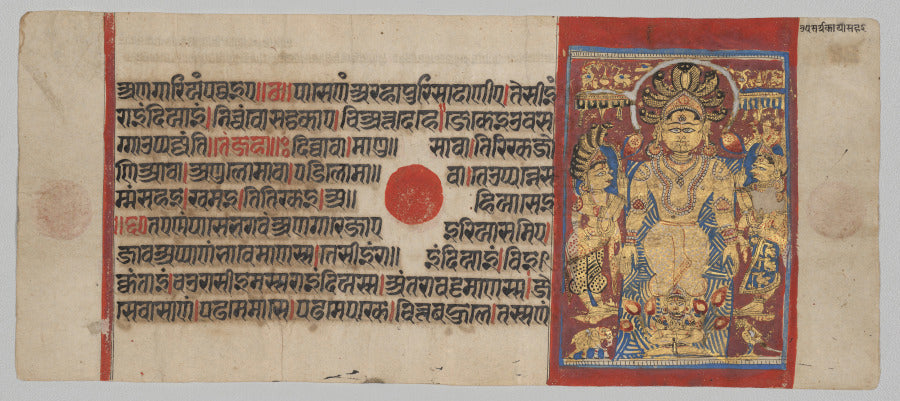 अणगारियं पव्वइए॥छ॥पासेणं अरहा पुरिसादाणीए।तेसीइं
राइंदियाइं।निच्चं वोसट्ठकाए।चियत्तदेहे।जे केइ उवस
ग्गा उप्पज्जंति॥तं जहा॥दिव्वा वा।माणु॥ सा वा।तिरिक्खजो
णिआ वा।अणुलोमा वा।पडिलोमा॥ वा।ते उप्पन्ने स
म्मं सहइ।खमइ।तितिक्खइ।अ॥ हियासेइ
॥छ॥तएणं से पासे भगवं अणगारे जाए इरियासमिए।
जाव अप्पाणं भावेमाणस्स।तेसीइं रा॥ इंदियाइं।विइ
क्कंताइं।चउरासीइमस्स राइंदियस्स।अंतरा वट्टमाणस्स।जे
से
पढमे मासे।पढमे पक्खे।चित्तबहुले।तस्सणं